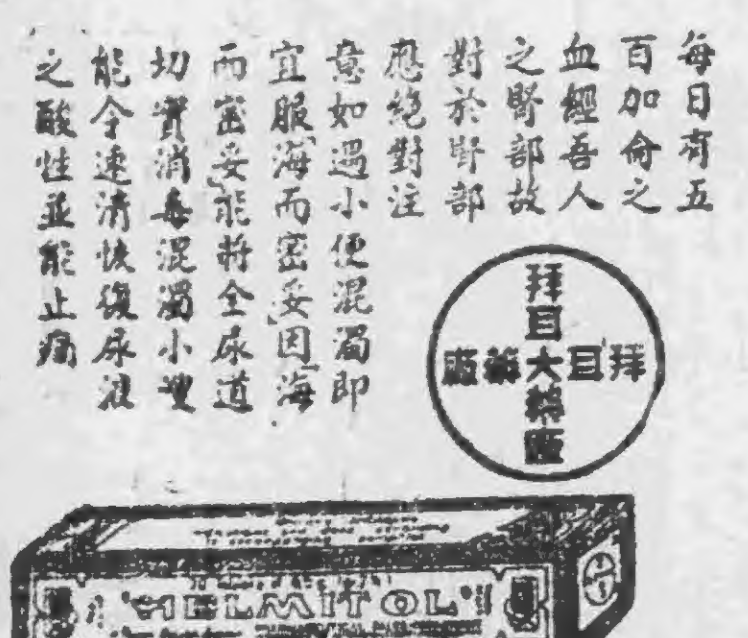 每日有五
百加侖之
血經吾人
之腎部故
對於腎部
應絕對注
意如遇小便混濁即
宜服海而密妥因海
而密妥能將全尿道
切實消毒混濁小溲
能令速清恢復尿液
之酸性並能止痛
拜耳大藥廠
拜耳大藥廠
HELMITOL